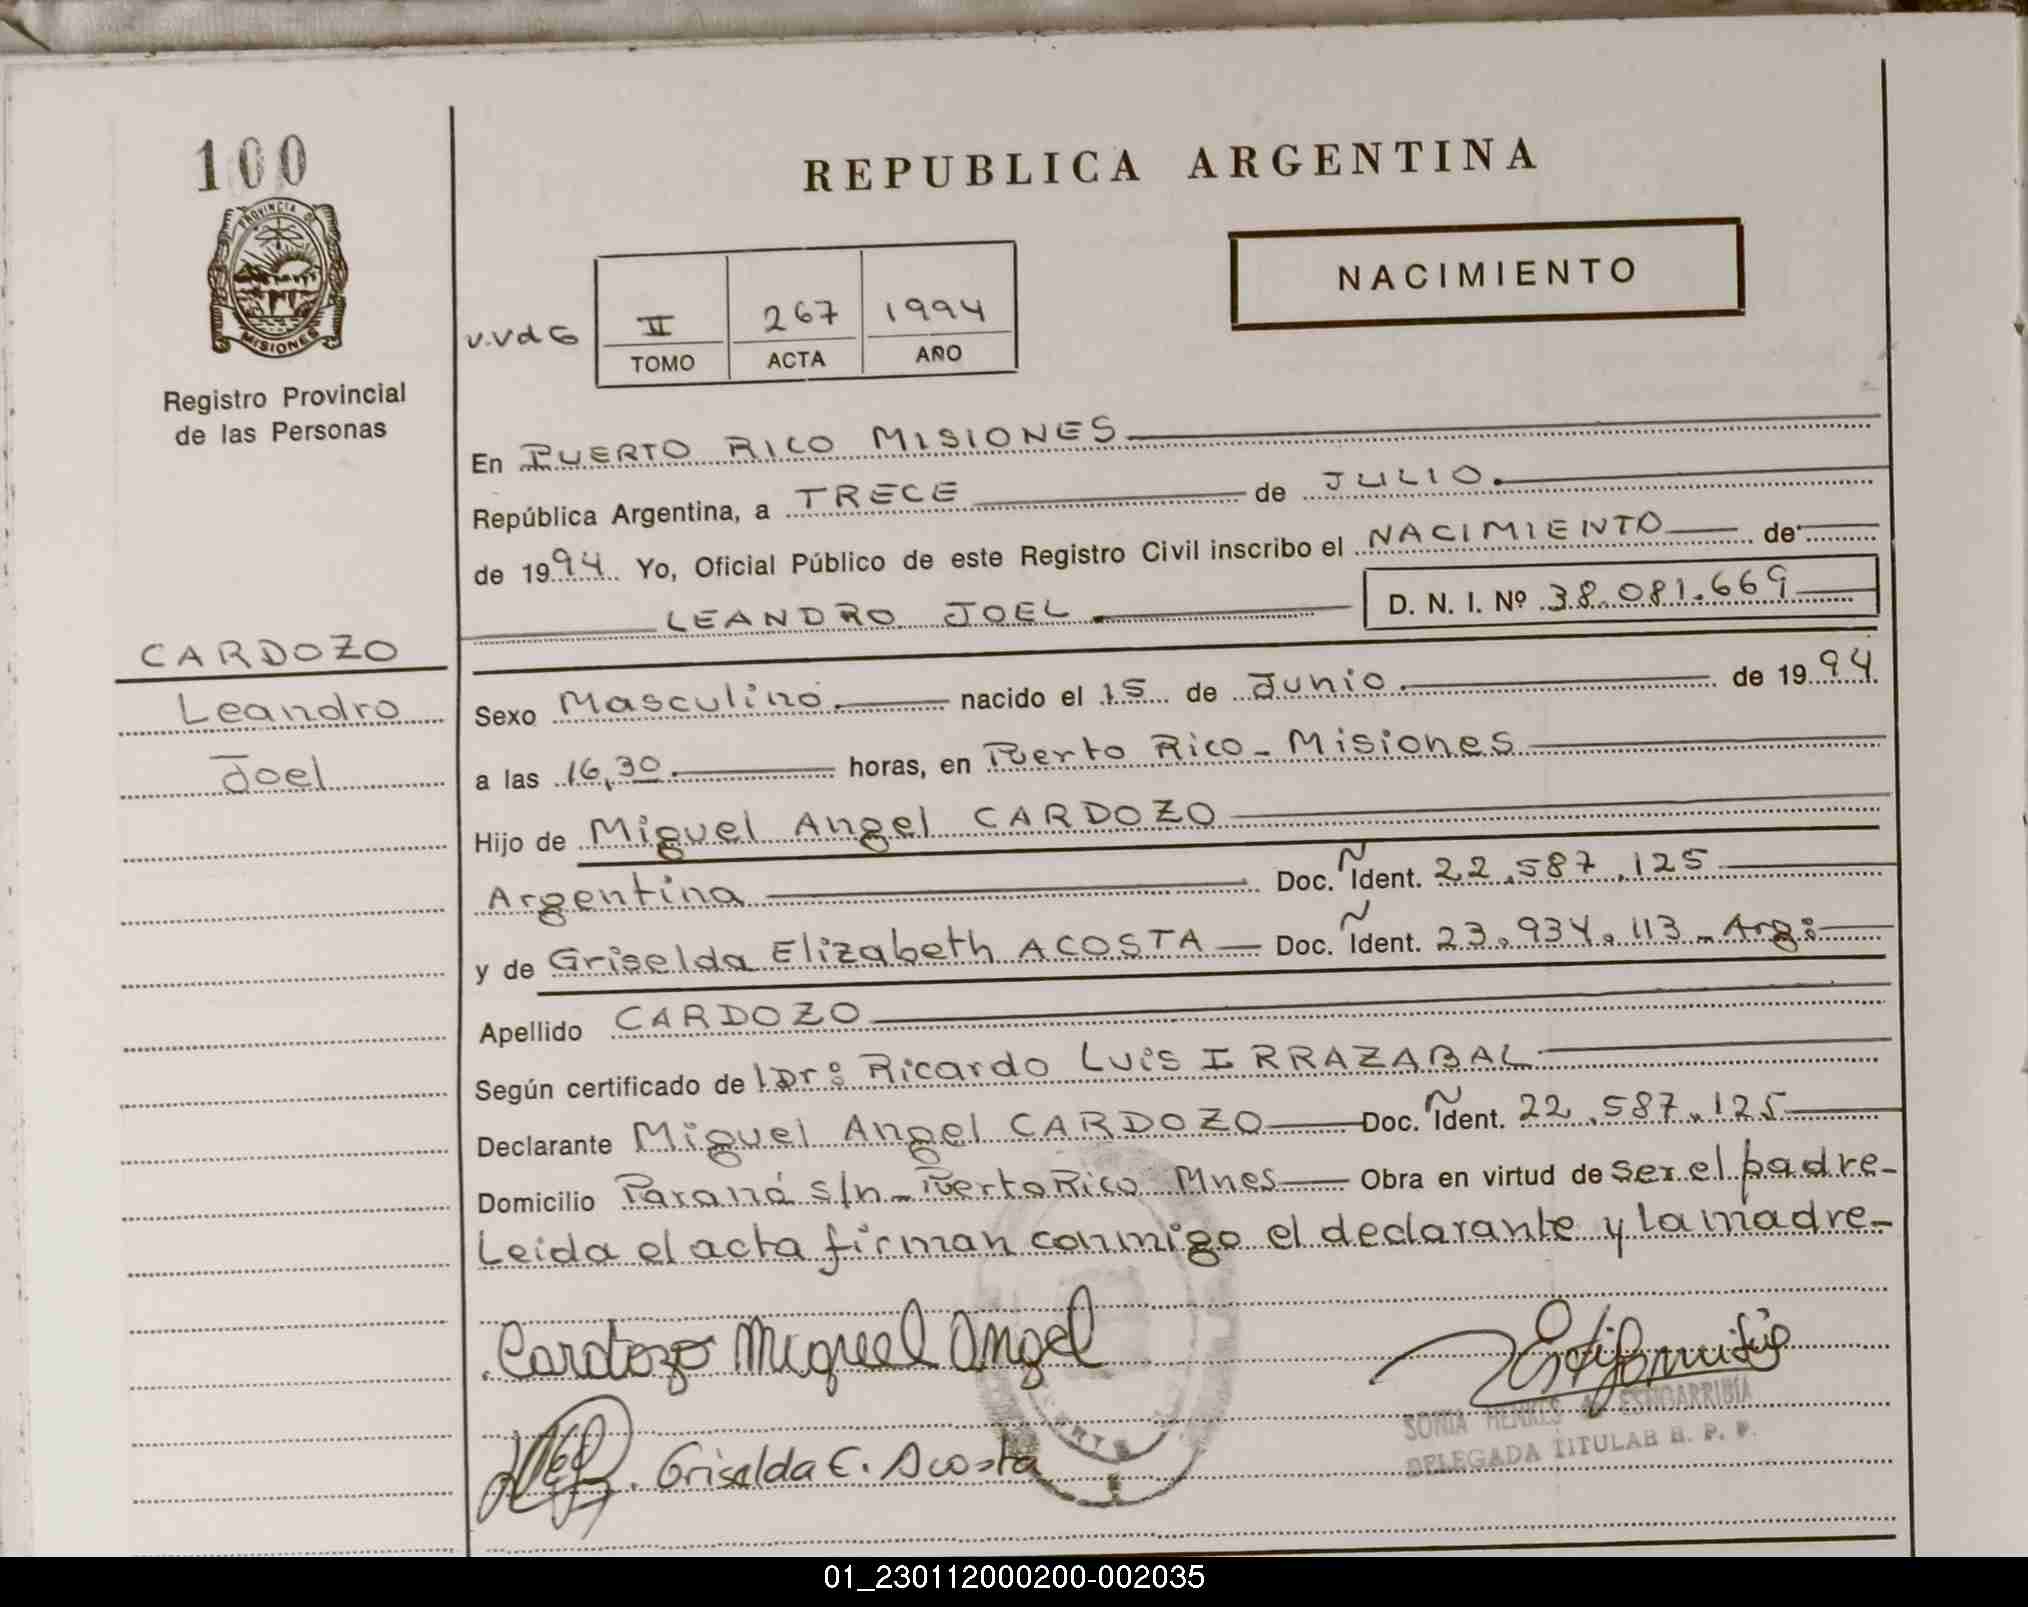 100
PROVINCIA DE
MISIONES
Registro Provincial
de las Personas
REPUBLICA ARGENTINA
NACIMIENTO
v.vd6
II 267 1994
TOMO ACTA AÑO
En PUERTO RICO MISIONES
República Argentina, a TRECE de JULIO.
de 1994. Yo, Oficial Público de este Registro Civil inscribo el NACIMIENTO de
LEANDRO JOEL. D. N. I. Nº 38.081.669
CARDOZO
Leandro
Joel
Sexo Masculino. nacido el 15 de Junio. de 1994.
a las 16,30. horas, en Puerto Rico - Misiones
Hijo de Miguel Angel CARDOZO
Argentina Doc. Ident. 22.587.125
y de Griselda Elizabeth ACOSTA Doc. Ident. 23.934.113 - Arg:
Apellido CARDOZO
Según certificado de l Dr: Ricardo Luis IRRAZABAL
Declarante Miguel Angel CARDOZO Doc. Ident. 22.587.125
Domicilio Paraná s/n - Puerto Rico Mnes Obra en virtud de ser el padre-
Leida el acta firman conmigo el declarante y la madre-
Cardozo Miguel Angel
Griselda E. Acosta
SONIA HENKES de ESNGARRIBIA
DELEGADA TITULAR R. P. P.
01_230112000200-002035